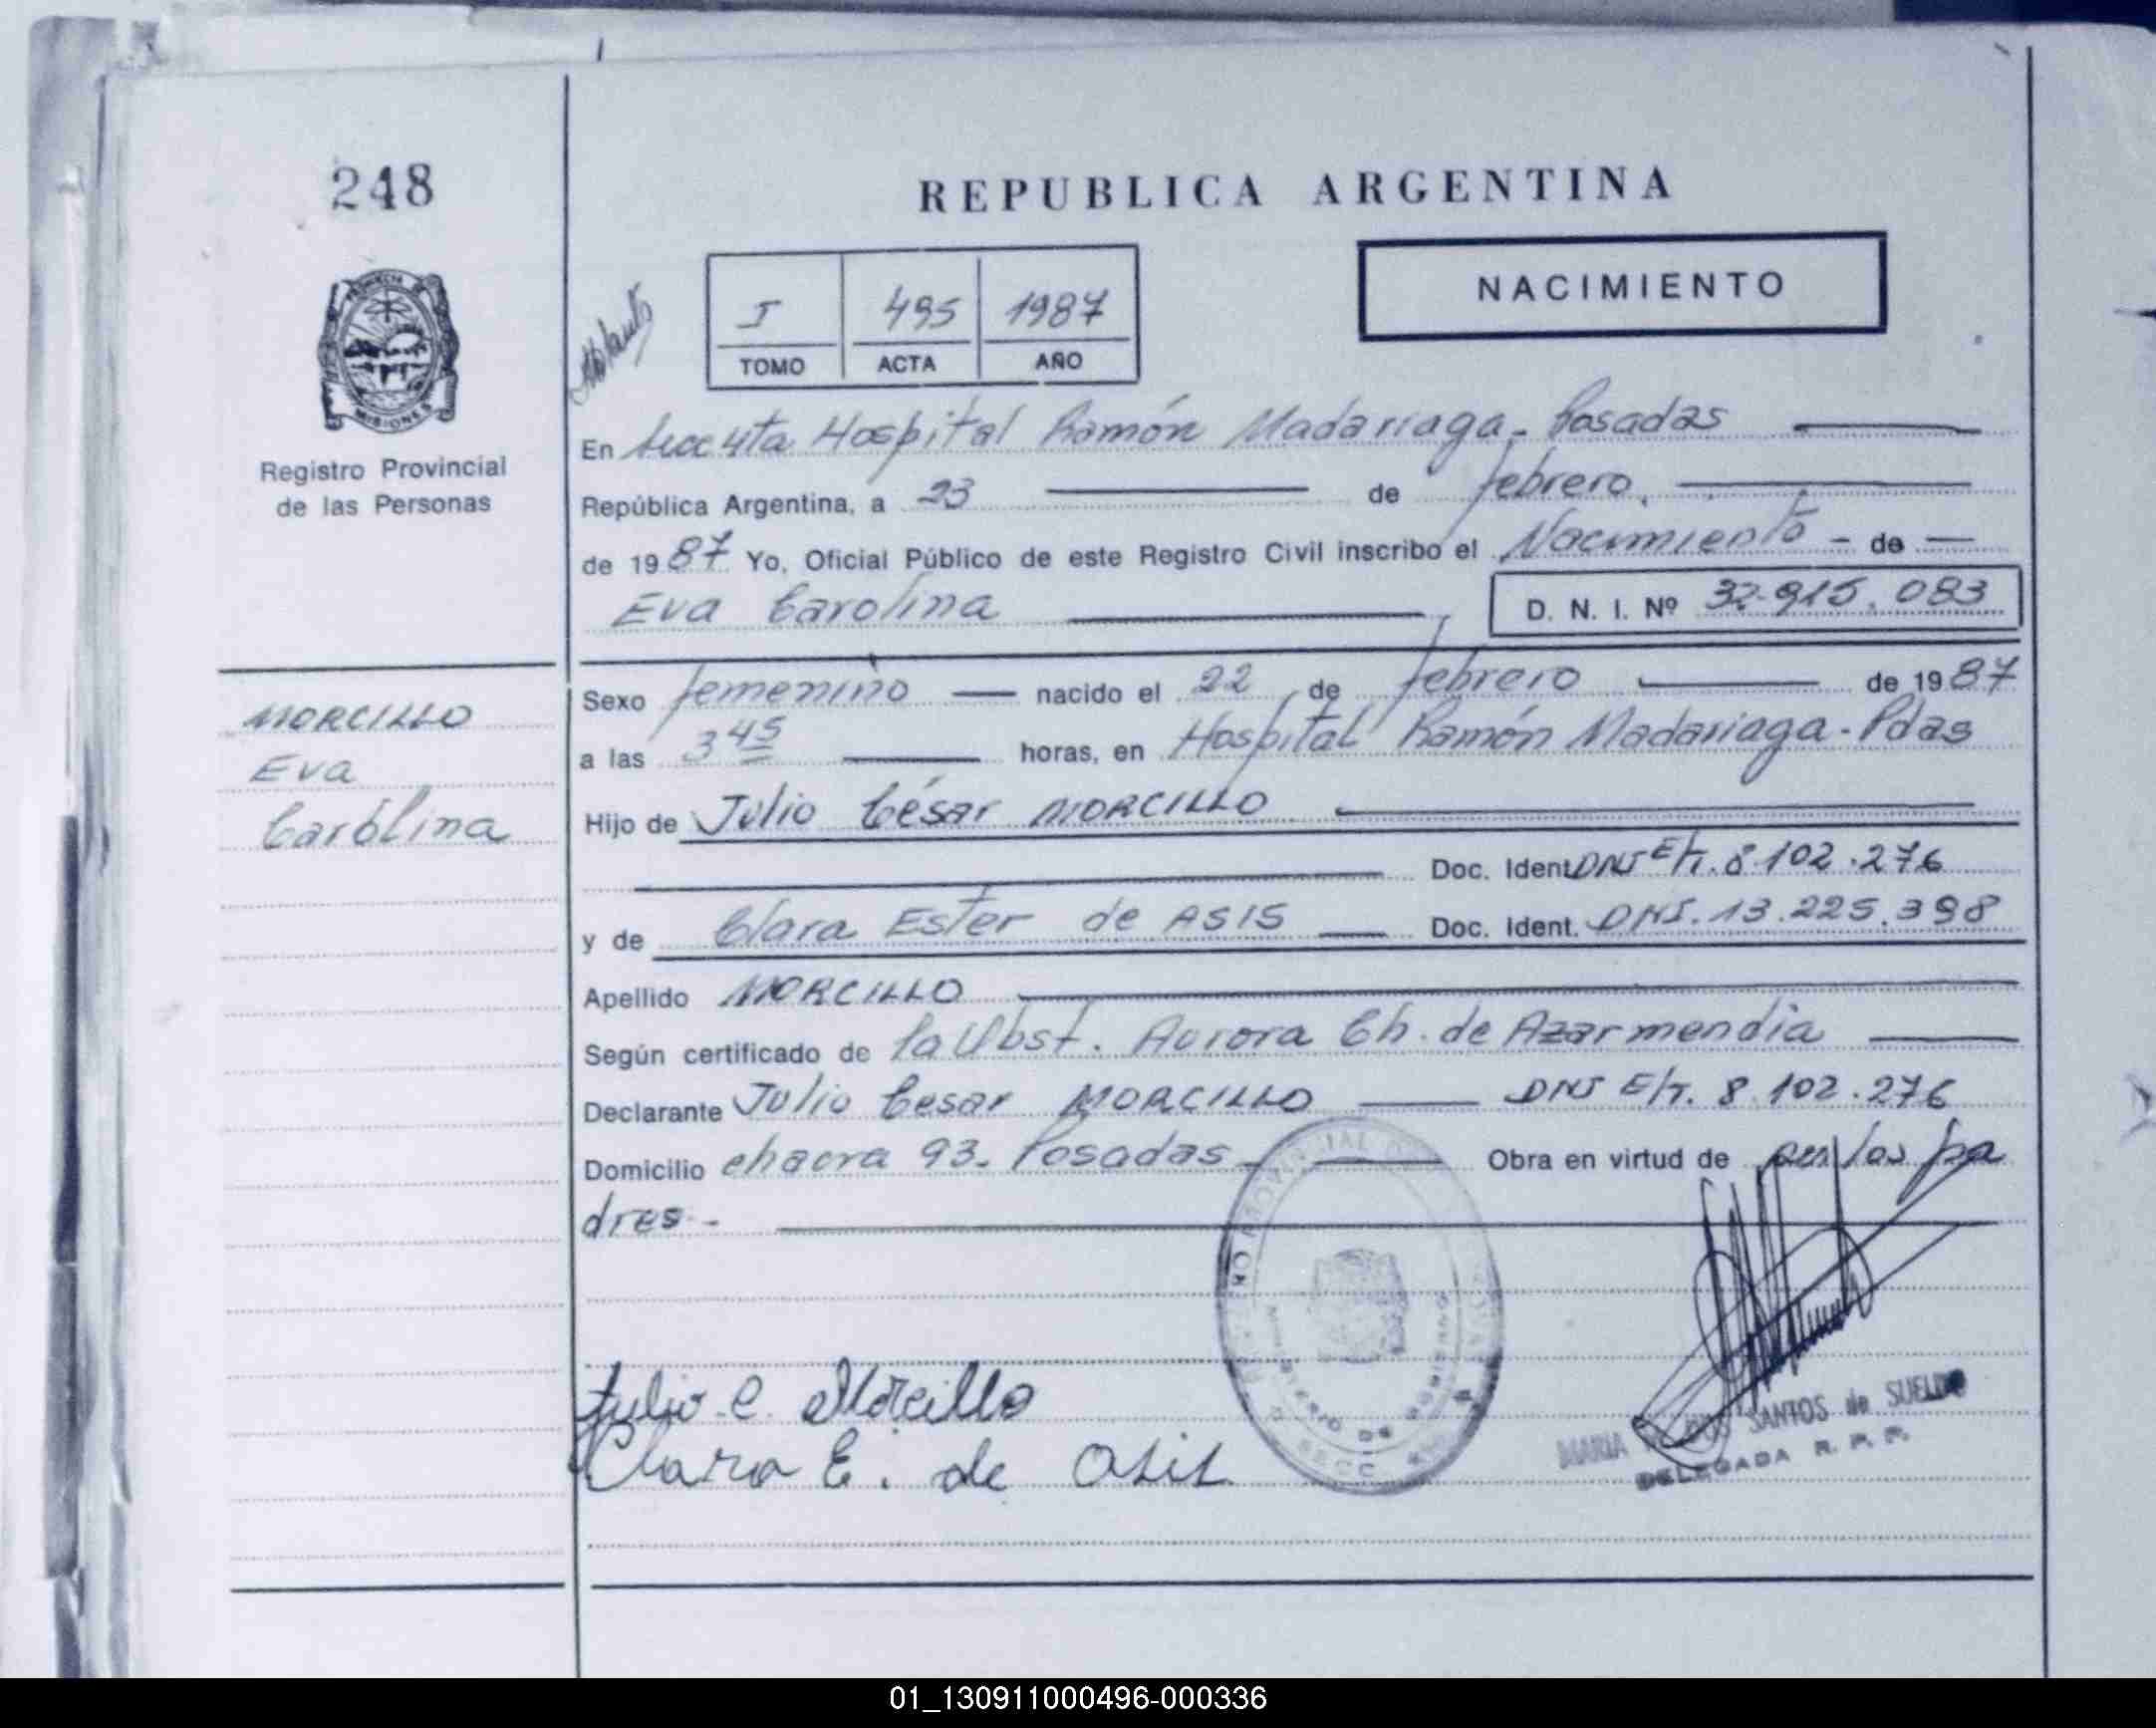 248
REPUBLICA ARGENTINA
NACIMIENTO
I 495 1987
TOMO ACTA AÑO
PROVINCIA DE
MISIONES
Registro Provincial
de las Personas
En Secc 4ta Hospital Ramón Madariaga - Posadas
República Argentina, a 23 de febrero
de 1987 Yo, Oficial Público de este Registro Civil inscribo el Nacimiento - de
Eva Carolina D. N. I. Nº 32.915.083
MORCILLO
Eva
Carolina
Sexo femenino nacido el 22 de febrero de 1987
a las 3 45 horas, en Hospital Ramón Madariaga - Pdas
Hijo de Julio César MORCILLO
Doc. Ident. DNI E/T. 8.102.276
y de Clara Ester de ASIS Doc. Ident. DNI. 13.225.398
Apellido MORCILLO
Según certificado de la Obst. Aurora Ch. de Azarmendia
Declarante Julio Cesar MORCILLO DNI E/T. 8.102.276
Domicilio chacra 93. Posadas Obra en virtud de ser los pa
dres -
Julio C. Morcillo
Clara E. de Asis
MARIA DOS SANTOS de SUELDO
DELEGADA R. P. P.
01_130911000496-000336